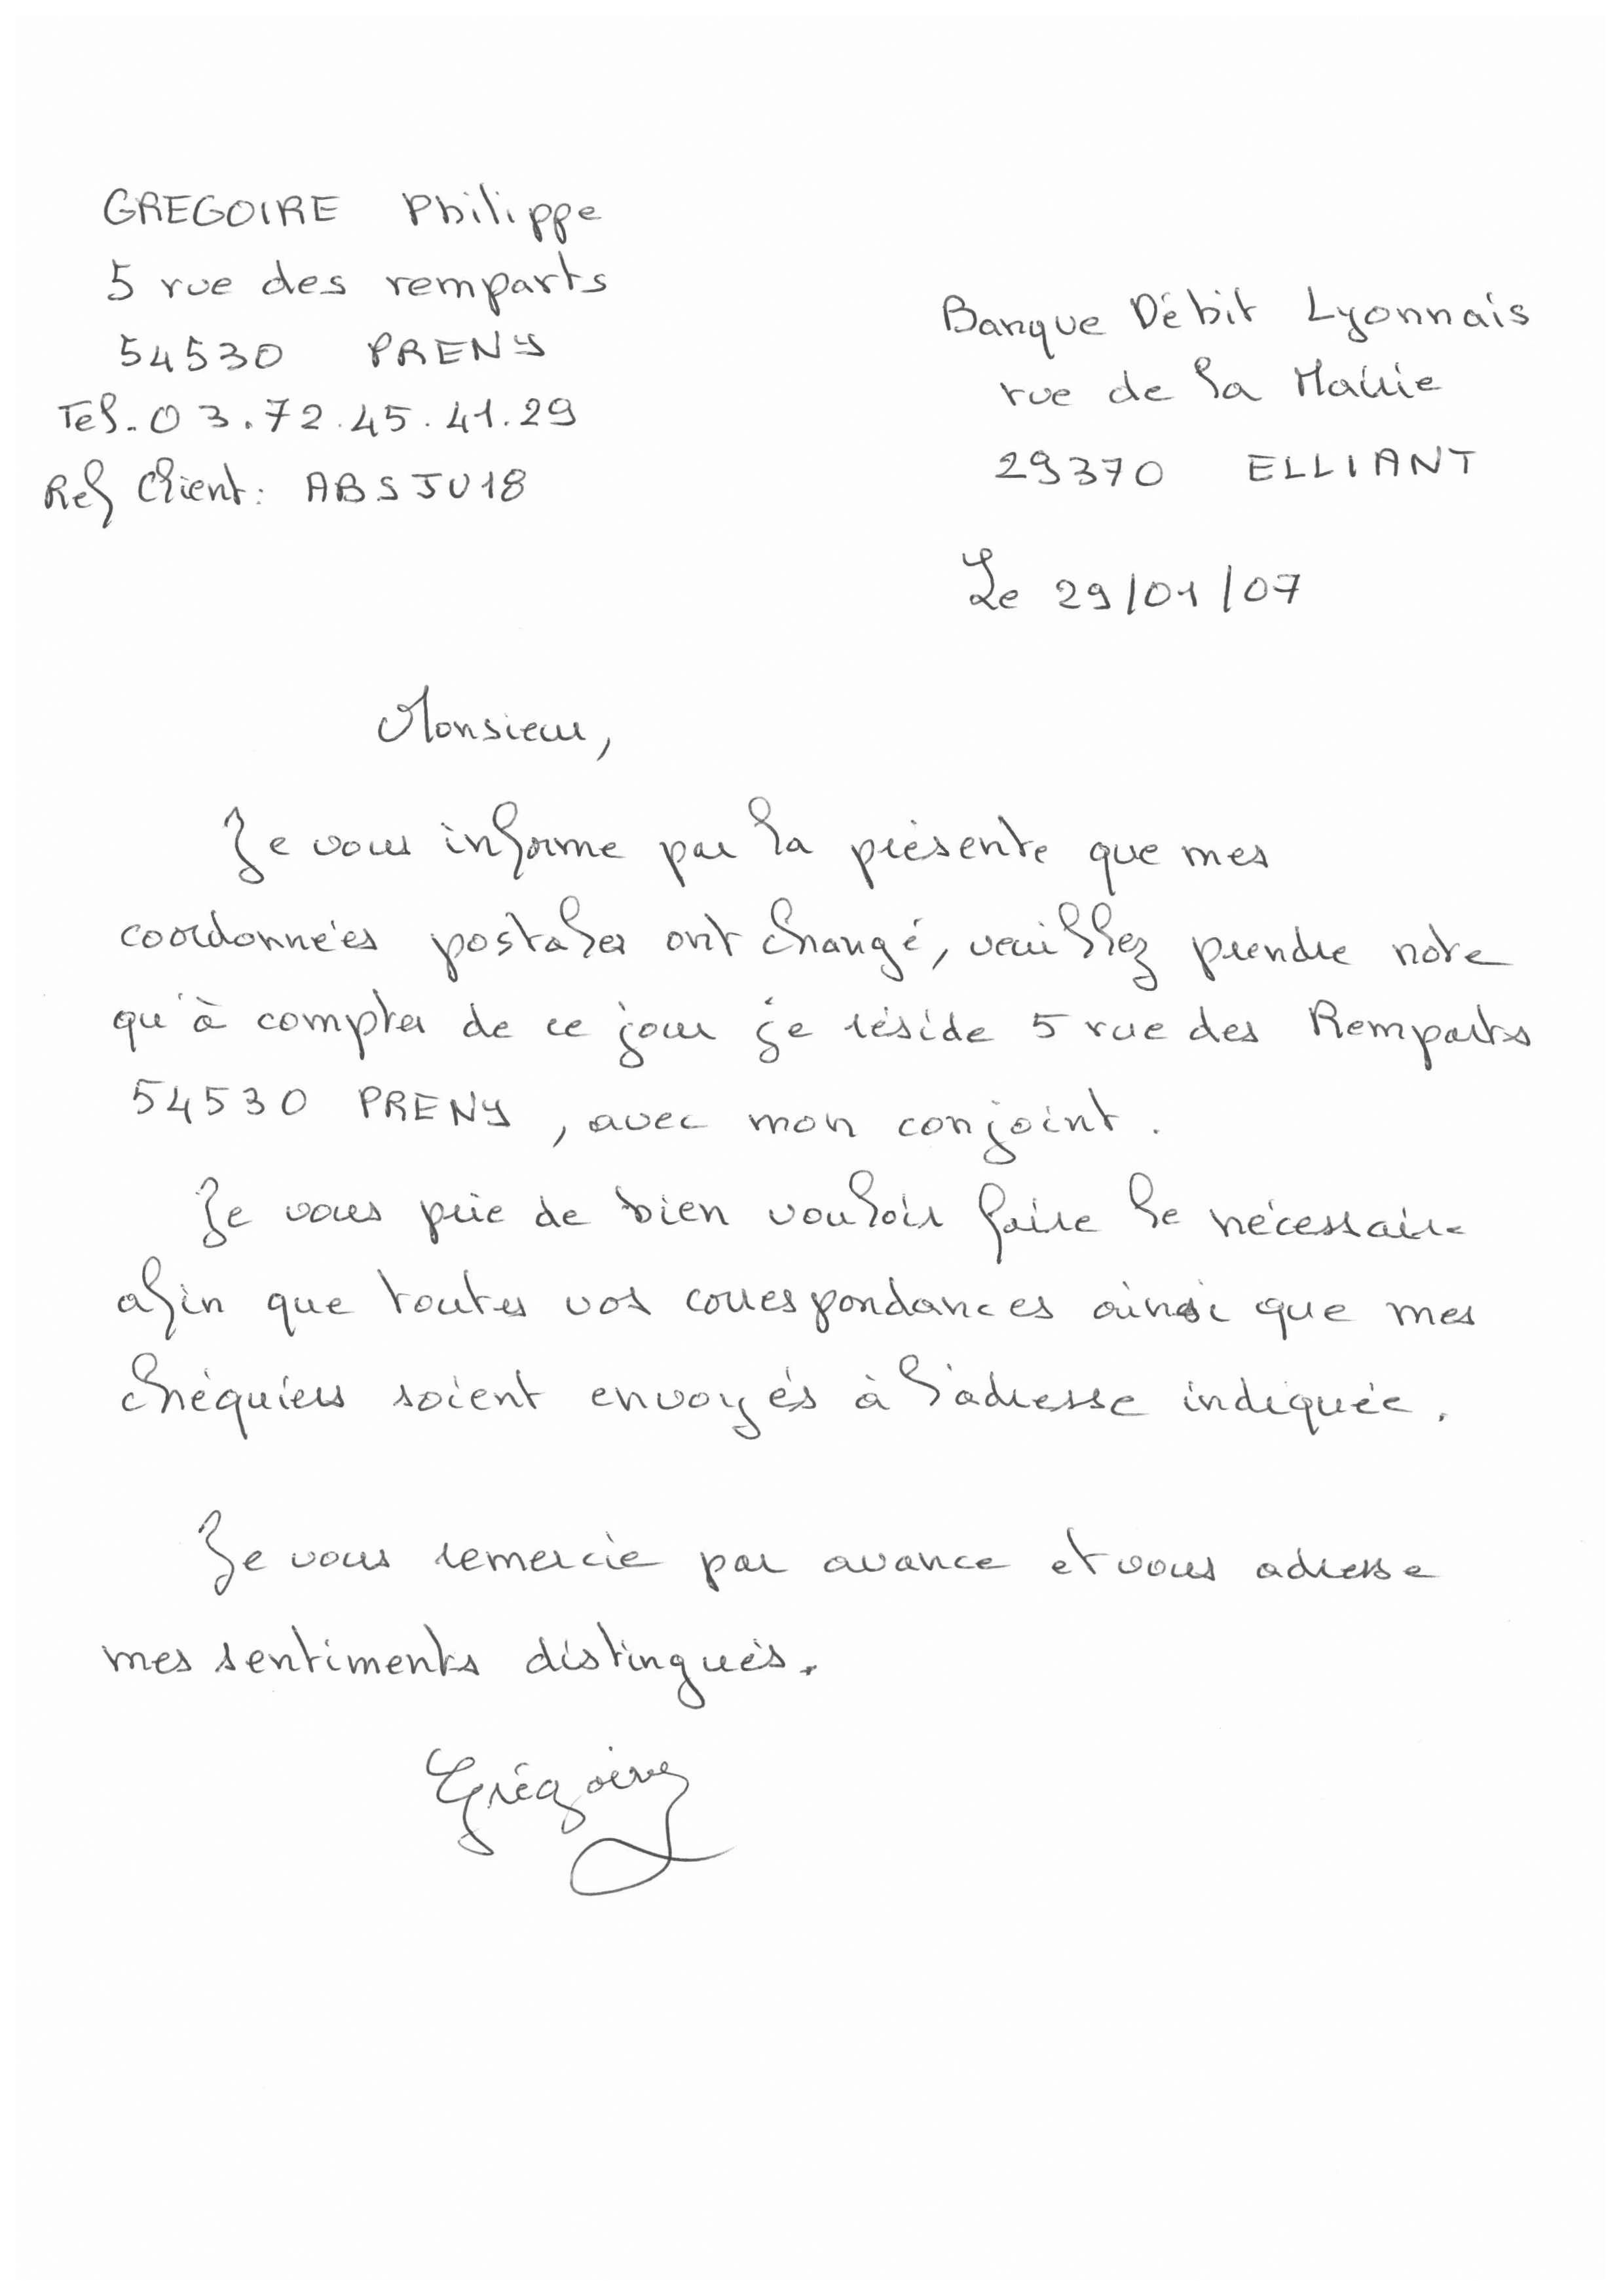 GREGOIRE Philippe
5 rue des remparts
54530 PRENY
Tel. 03.72.45.41.29
Ref Client: ABSJU18
Banque Débit Lyonnais
rue de la Mairie
29370 ELLIANT
Le 29/01/07
Monsieur,
Je vous informe par la présente que mes
coordonnées postales ont changé, veuillez prendre note
qu'à compter de ce jour je réside 5 rue des Remparts
54530 PRENY, avec mon conjoint.
Je vous prie de bien vouloir faire le nécessaire
afin que toutes vos correspondances ainsi que mes
chéquiers soient envoyés à l'adresse indiquée.
Je vous remercie par avance et vous adresse
mes sentiments distingués.
Grégoire